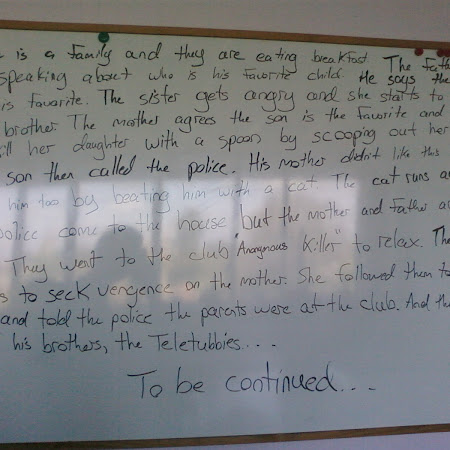 is a family and they are eating breakfast. The
speaking about who is his favorite child. He says the
is favarite. The sister gets angry and she starts to
brother. The mother agrees the son is the favorite and
her daughter with a spoon by scooping out her
son then called the police. His mother didn't like this
him too by beating him with a cat. The cat runs
police come to the house but the mother and father
They went to the club "Anonymous Killer" to relax. The
s to seek vengence on the mother. She followed them to
and told the police the parents were at the club. And the
his brothers, the Teletubbies....
To be continued...